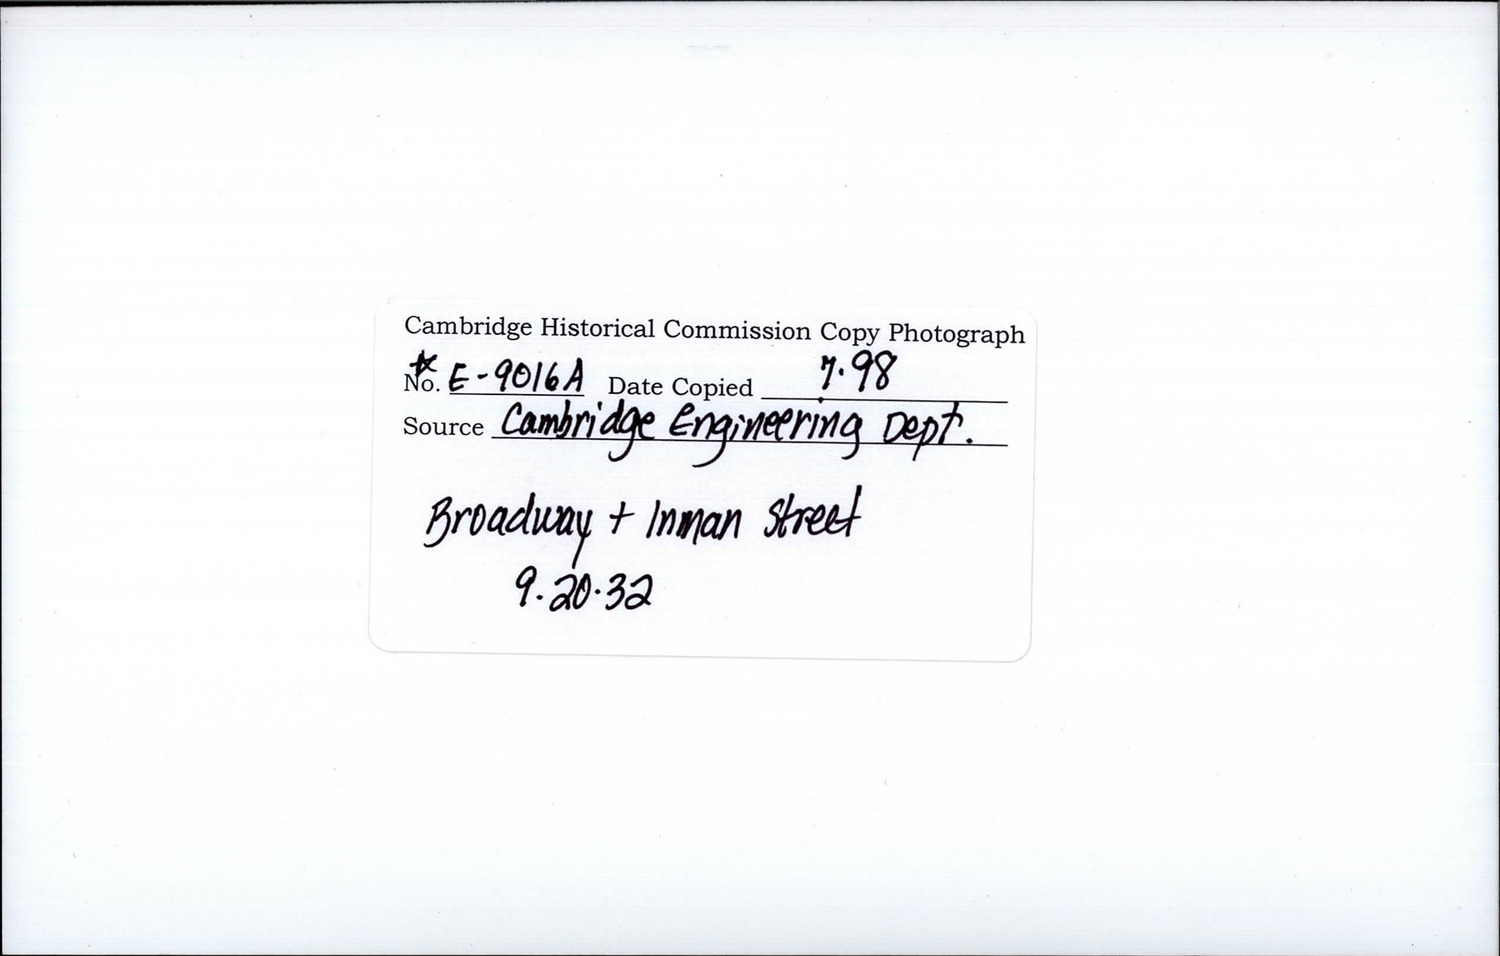 Cambridge Historical Commission Copy Photograph
* No. E-9016A Date Copied 7.98
Source Cambridge Engineering Dept.
Broadway + Inman Street
9.20.32